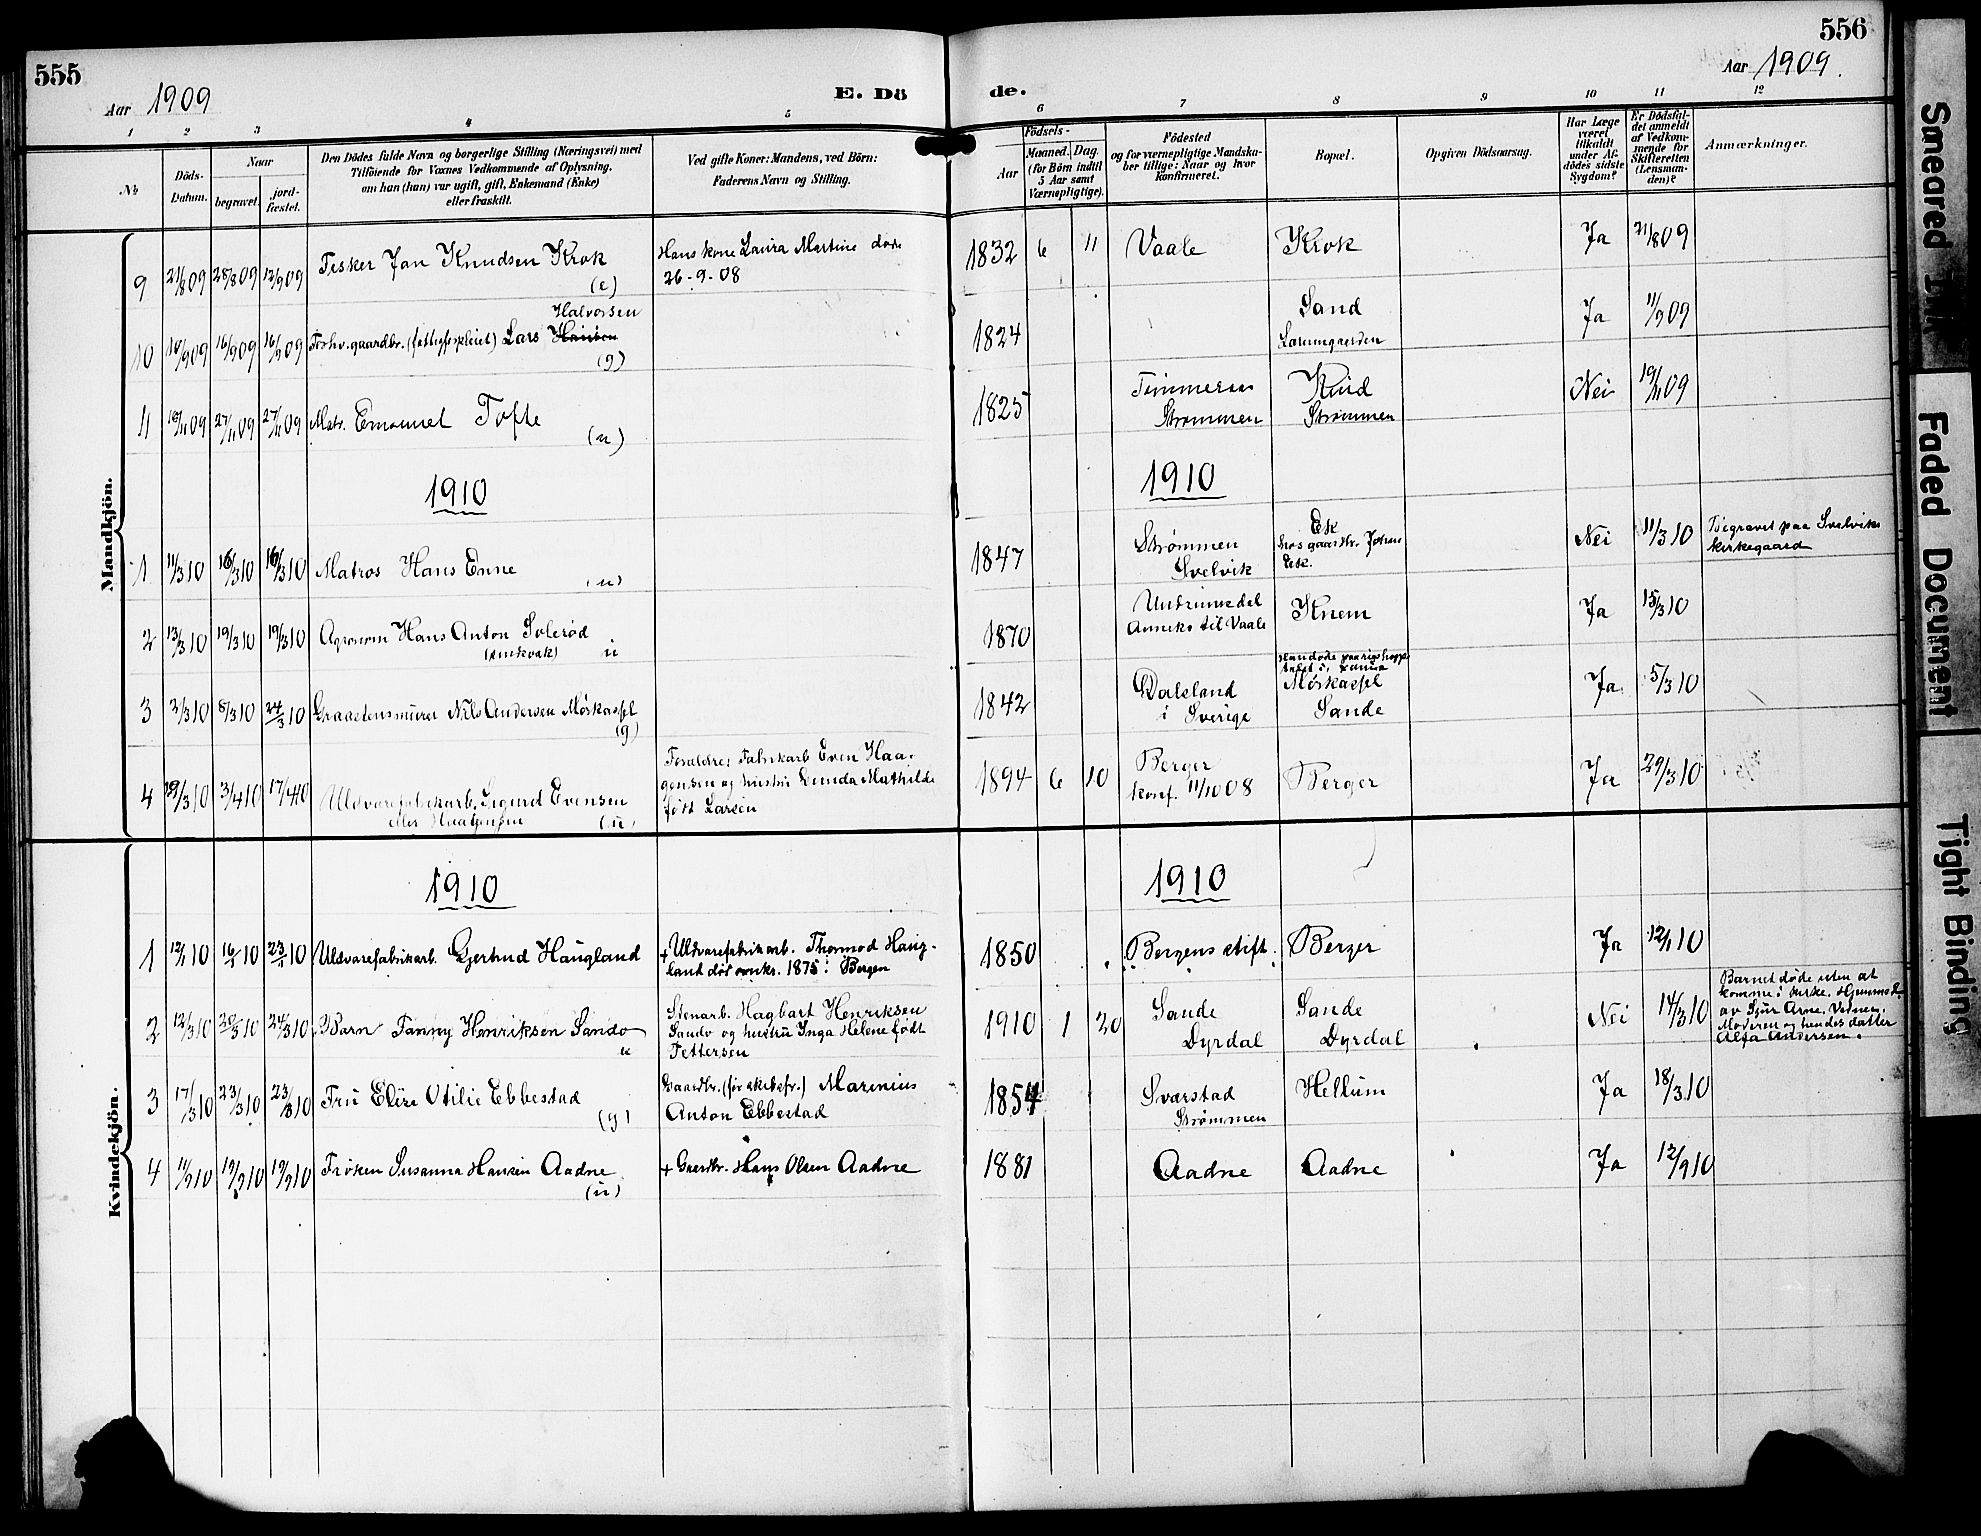 555
Aar 1909
E. Dö
de.
Aar 1909.
556
1 2 3 4 5 6 7 8 9 10 11 12
No
Döds-
Datum.
Naar
begravet.
jord-
fæstet.
Den Dödes fulde Navn og borgerlige Stilling (Næringsvei) med
Tilföiende for Voxnes Vedkommende af Oplysning,
om han (hun) var ugift, gift, Enkemand (Enke)
eller fraskilt.
Ved gifte Koner: Mandens, ved Börn:
Faderens Navn og Stilling.
Födsels-
Aar
Maaned. Dag.
(for Börn indtil
5 Aar samt
Værnepligtige).
Födested
og for værnepligtige Mandska-
ber tillige: Naar og hvor
konfirmeret.
Bopæl.
Opgiven Dödsaarsag.
Har Læge
været
tilkaldt
under Af-
dödes sidste
Sygdom?
Er Dödsfal-
det anmeldt
af Vedkom-
mende for
Skifteretten
(Lensman-
den)?
Anmærkninger.
Mandkjön.
9 21/8 09 28/8 09 12/9 09 Fisker Jan Knudsen Krok
(e)
Hans kone Laura Martine døde
26-9-08
1832 6 11 Vaale Krok Ja 21/8 09
Halvorsen
10 10/9 09 16/9 09 16/9 09 Lars Hansen
(g)
1824 Sand Ja 11/9 09
11 19/11 09 27/11 09 27/11 09 Matr. Emanuel Tofte
(u)
1825
Strømmen
Strømmen
Nei 19/11 09
1910
1910
1 11/3 10 16/3 10 16/3 10 Matros Hans Enne
(u)
1847 Strømmen
Svelvik
Ek
hos gaardbr. Johan
Eek.
Nei 11/3 10 Begravet paa Svelviks
kirkegaard
2 13/3 10 19/3 10 19/3 10 Agronom Hans Anton Solerød
u
1870 Undrumsdal
Anneks til Vaale
Knem Ja 15/3 10
3 2/3 10 8/3 10 24/3 10 Graastensmurer Nils Andersen Mørkassel
(g)
1842 Dalsland
i Sverige
Mørkassel
Sande
Ja 5/3 10
4 29/3 10 3/4 10 17/4 10 Uldvarefabrikarb. Sigurd Evensen
eller Haagensen (u)
Forældre: Fabrikarb Even Haa-
gensen og hustru Lunda Mathilde
født Larsen
1894 6 10 Berger
konf. 11/10 08
Berger Ja 29/3 10
Kvindekjön.
1910
1910
1 12/1 10 16/1 10 23/1 10 Uldvarefabrikarb. Gjertrud Haugland
+ Uldvarefabrikarb. Thormod Haug-
land død omkr. 1875 i Bergen
1850 Bergens stift. Berger Ja 12/1 10
2 12/3 10 20/3 10 24/3 10 Barn Fanny Henriksen Sando
u
Stenarb. Hagbart Henriksen
Sando og hustru Inga Helene født
Pettersen
1910 1 20 Sande
Dyrdal
Sande
Dyrdal
Nei 14/3 10
Barnet døde uten at
komme i kirke. Hjemmed.
av Sjur Arne, Vidner:
Moderen og hendes datter
Alfa Andersen.
3 17/3 10 23/3 10 23/3 10 Fru Elise Otilie Ebbestad
(g)
Gaardbr. (før skibsfr.) Marenius
Anton Ebbestad
1854 Svarstad
Strømmen
Hellum Ja 18/3 10
4 11/9 10 19/9 10 19/9 10 Frøken Susanna Hansen Aadne
(u)
+ Gaardbr. Hans Olsen Aadne
1881 Aadne Aadne Ja 12/9 10
Smeared
Faded Document
Tight Binding